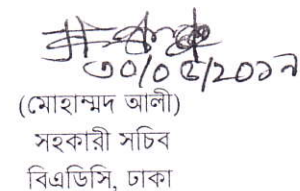 ৩০/০৫/২০১৭
(মোহাম্মদ আলী)
সহকারী সচিব
বিএডিসি, ঢাকা